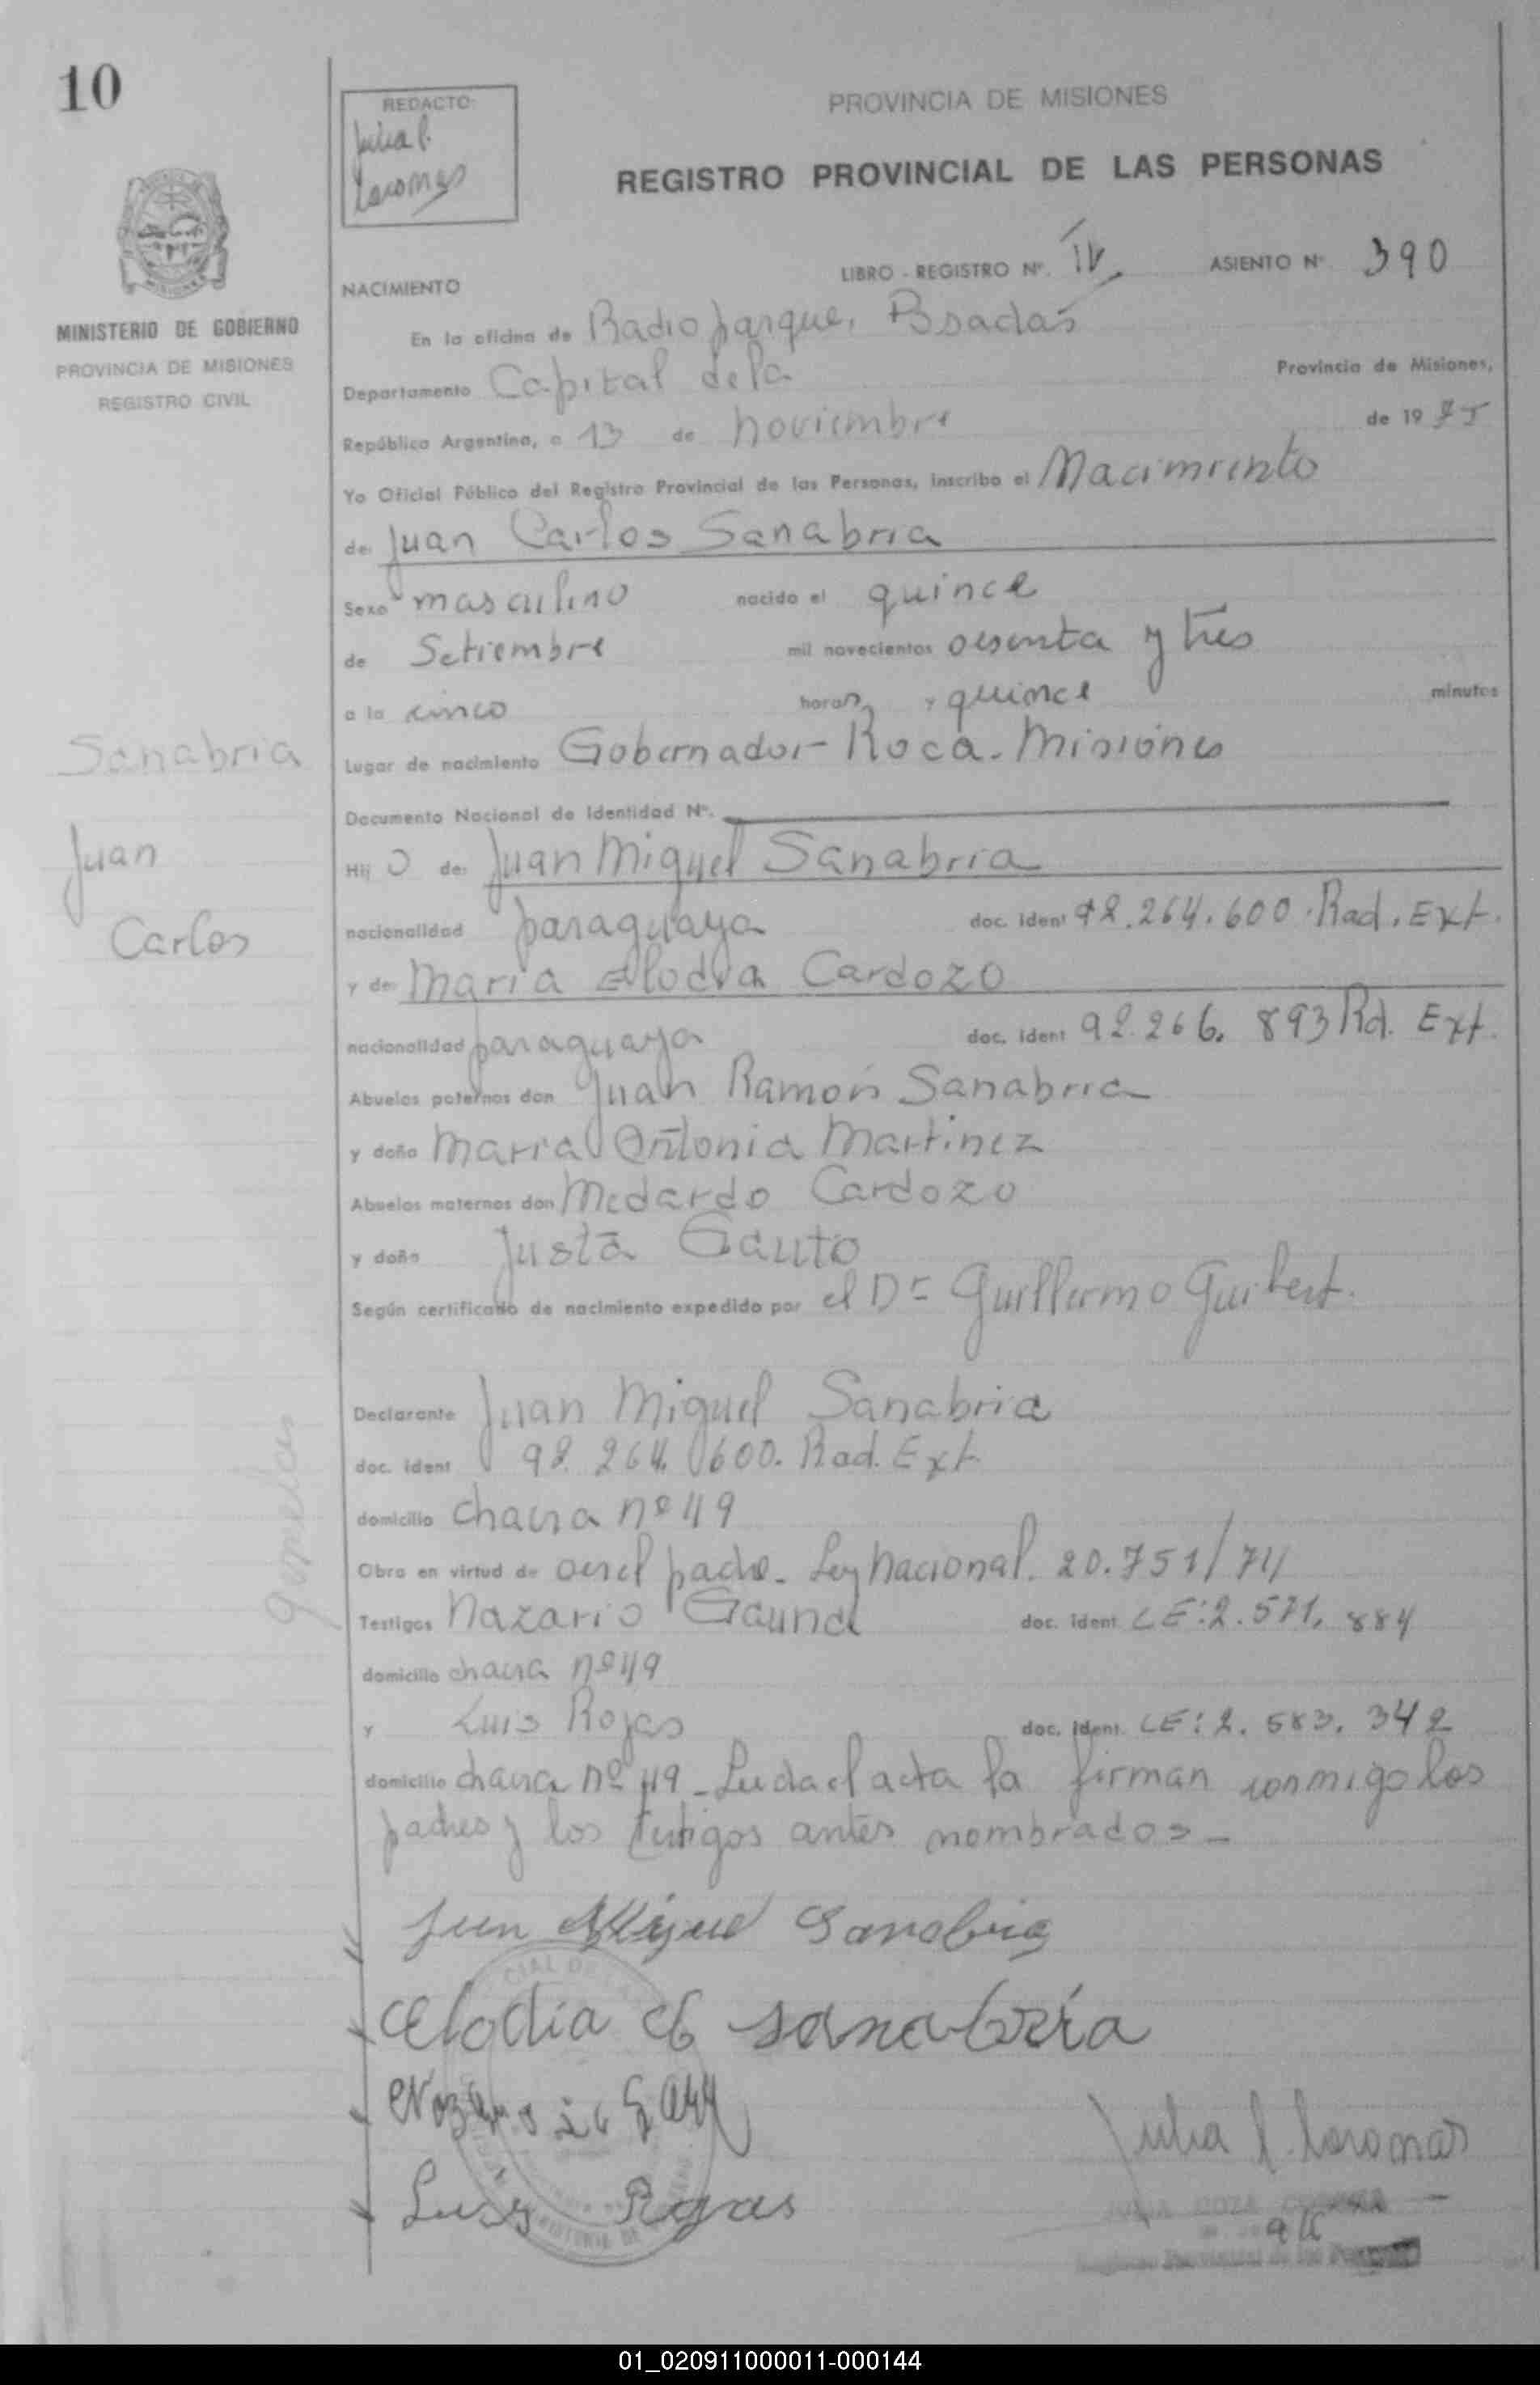 10
REDACTO:
Julia P.
PROVINCIA DE MISIONES
REGISTRO PROVINCIAL DE LAS PERSONAS
LIBRO - REGISTRO Nº. IV ASIENTO Nº 390
NACIMIENTO
MINISTERIO DE GOBIERNO
PROVINCIA DE MISIONES
REGISTRO CIVIL
En la oficina de Radio parque, Posadas
Departamento Capital de la Provincia de Misiones,
República Argentina, a 13 de noviembre de 1975
Yo Oficial Público del Registro Provincial de las Personas, inscribo el Nacimiento
de: Juan Carlos Sanabria
Sexo masculino nacido el quince
de Setiembre mil novecientos sesenta y tres
a la cinco horas y quince minutos
Lugar de nacimiento Gobernador Roca - Misiones
Documento Nacional de Identidad Nº.
Sanabria
Juan
Carlos
Hij o de: Juan Miguel Sanabria
nacionalidad paraguaya doc. ident 92.264.600. Rad. Ext.
y de: Maria Elodia Cardozo
nacionalidad paraguaya doc. ident 92.266.893 Rd. Ext.
Abuelos paternos don Juan Ramón Sanabria
y doña Maria Antonia Martinez
Abuelos maternos don Medardo Cardozo
y doña Justa Gauto
Según certificado de nacimiento expedido por el Dr Guillermo Guibert.
Declarante Juan Miguel Sanabria
doc. ident 92.264.600. Rad. Ext.
domicilio chacra nº 119
Gemelos
Obra en virtud de ser el padre - Ley Nacional. 20.751/74
Testigos Nazario Gauna doc. ident LE: 2.571.884
domicilio chacra nº 119
y Luis Rojas doc. ident. LE: 2.583.342
domicilio chacra nº 119 - Leida el acta la firman conmigo los
padres y los testigos antes nombrados -
Juan Miguel Sanabria
Elodia C de Sanabria
Luis Rojas
Julia P.
01_020911000011-000144